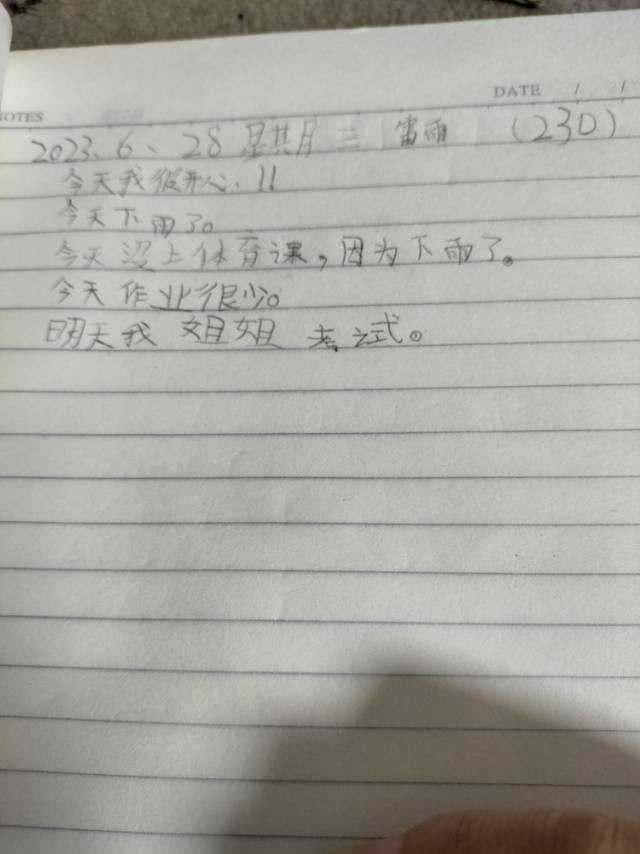 NOTES
DATE / /
2023、6、28 星其月三 雷雨 (230)
今天我很开心、!!
今天下雨了。
今天没上体育课,因为下雨了。
今天作业很少。
明天我姐姐考试。